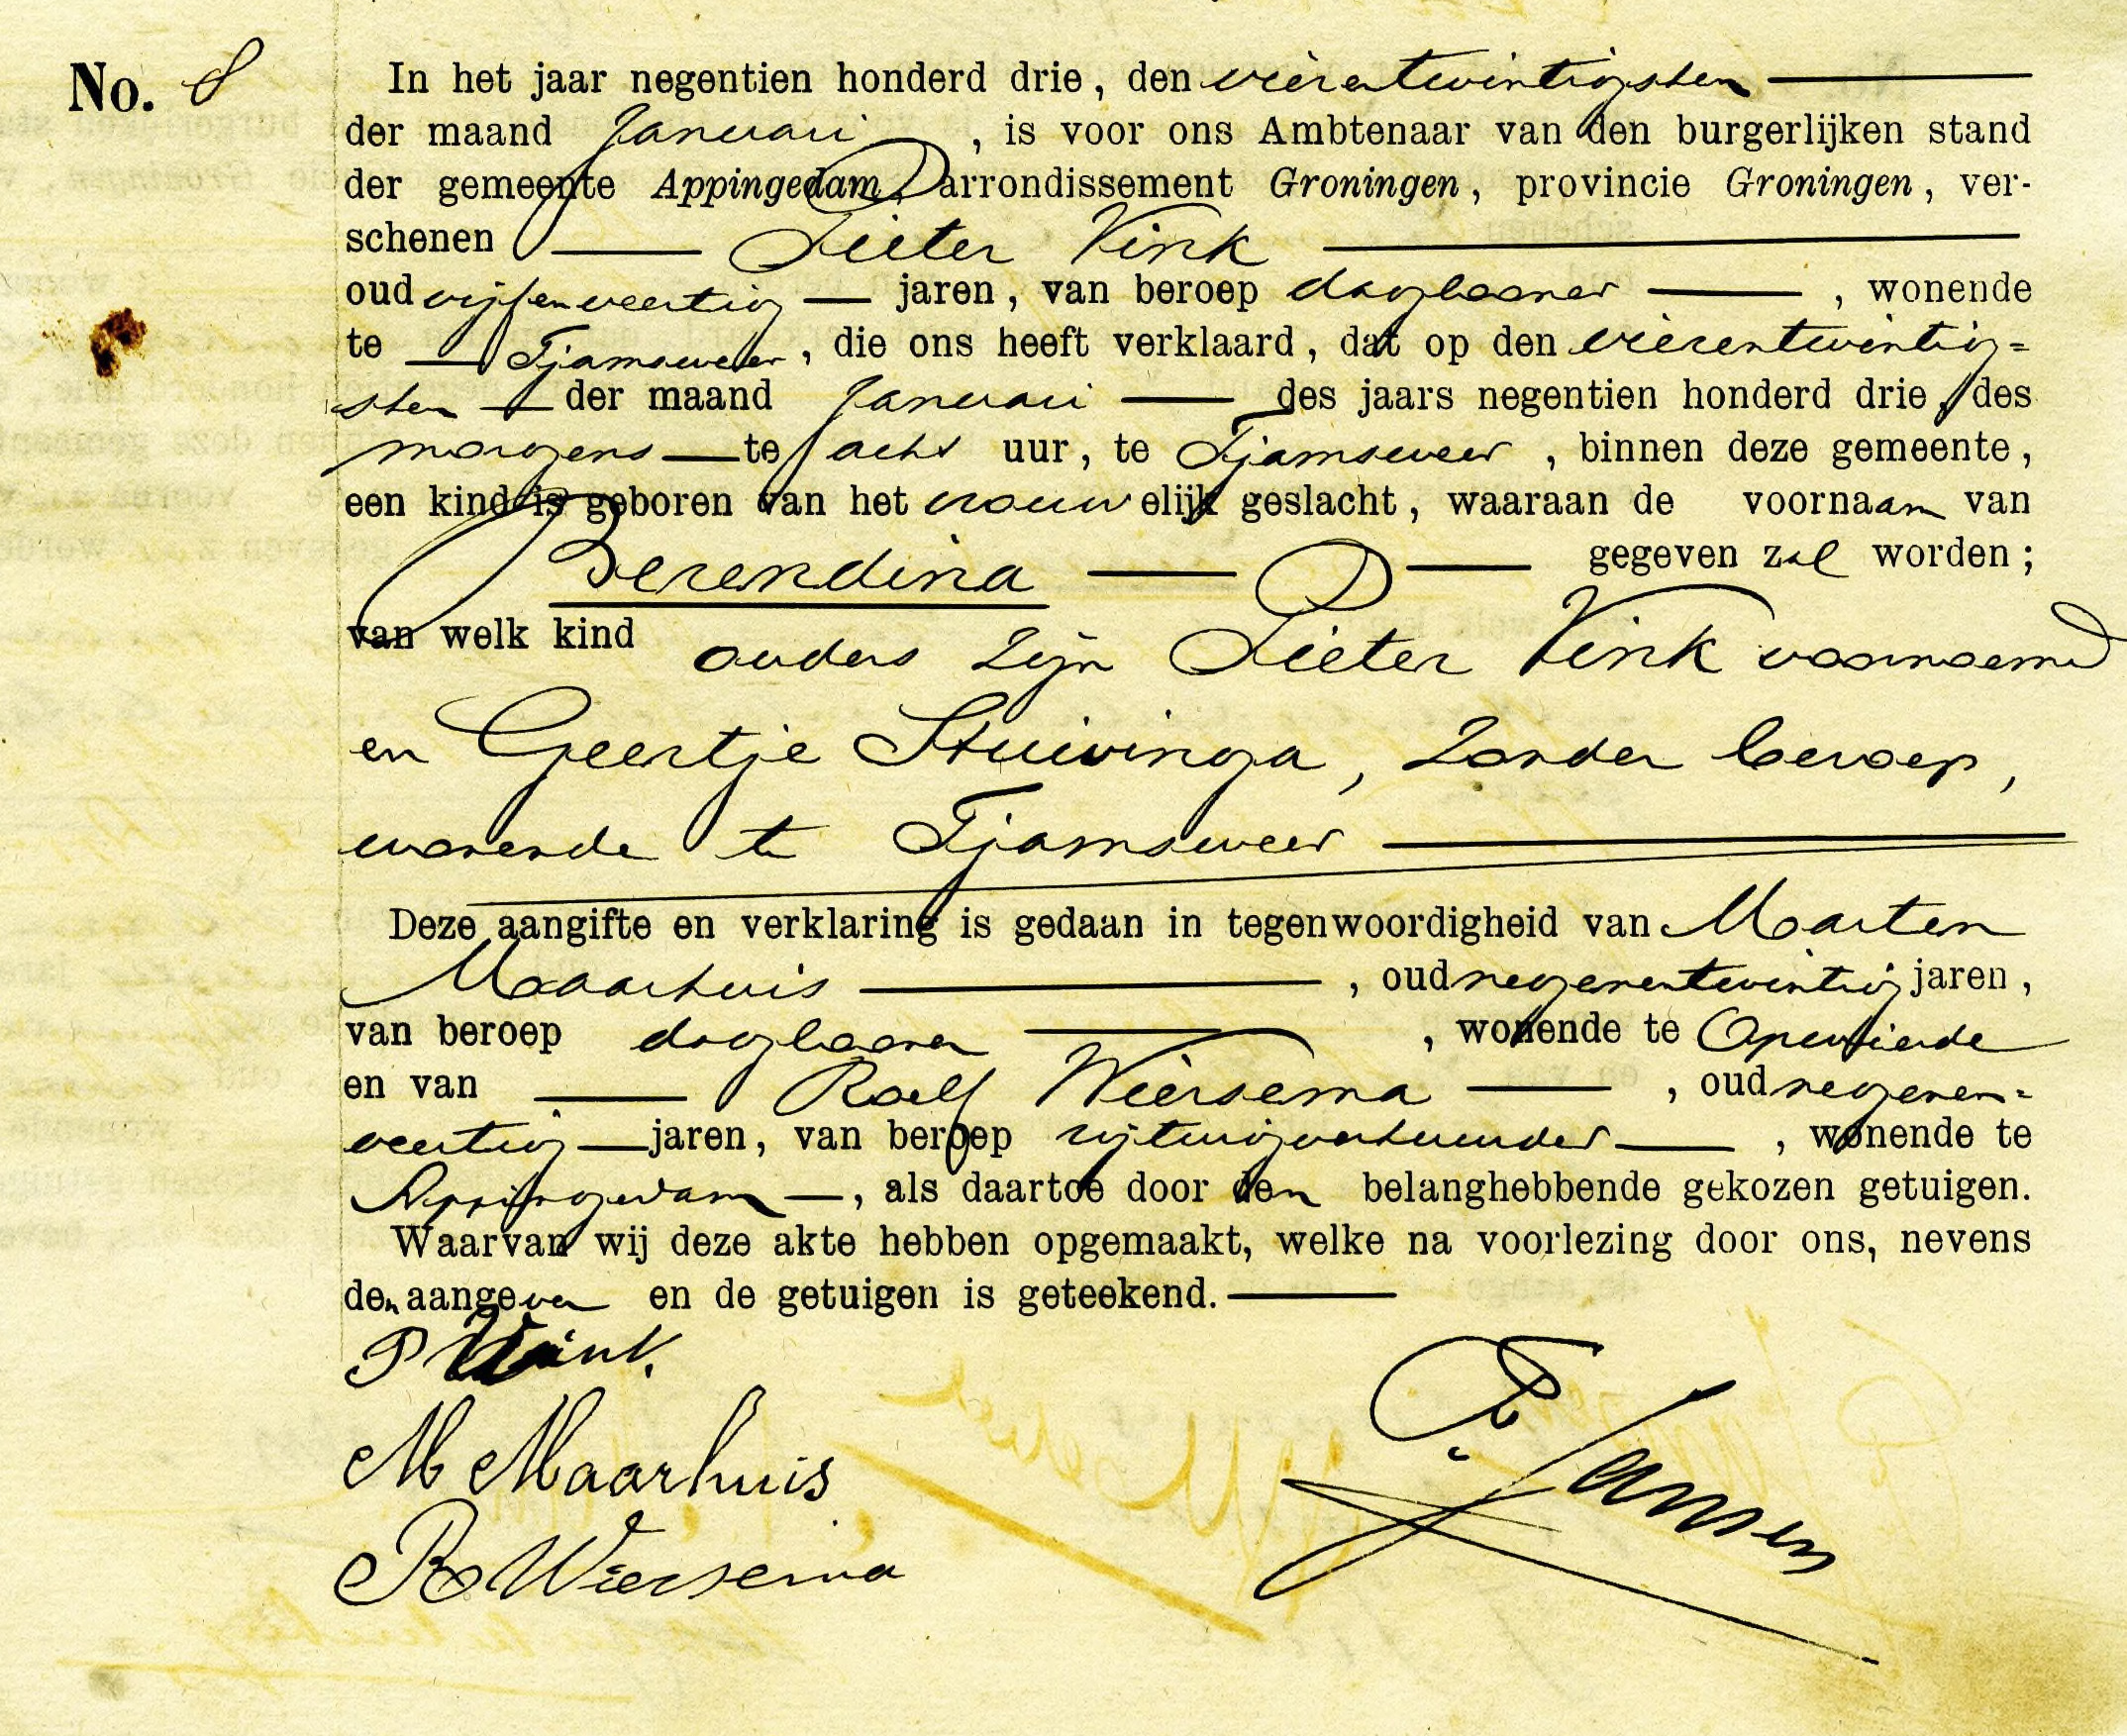 No. 8
In het jaar negentien honderd drie, den vierentwintigsten
der maand Januari, is voor ons Ambtenaar van den burgerlijken stand
der gemeente Appingedam, arrondissement Groningen, provincie Groningen, ver-
schenen Pieter Vink
oud vijfenveertig jaren, van beroep daglooner, wonende
te Tjamsweer, die ons heeft verklaard, dat op den vierentwintig=
sten der maand Januari des jaars negentien honderd drie, des
morgens te acht uur, te Tjamsweer, binnen deze gemeente,
een kind is geboren van het vrouwelijk geslacht, waaraan de voornaam van
Berendina gegeven zal worden;
van welk kind ouders zijn Pieter Vink voornoemd
en Geertje Stuivinga, zonder beroep,
wonende te Tjamsweer
Deze aangifte en verklaring is gedaan in tegenwoordigheid van Marten
Maarhuis, oud negenentwintig jaren,
van beroep daglooner, wonende te Opwierde
en van Roelf Wiersema, oud negenen=
veertig jaren, van beroep rijtuigverhuurder, wonende te
Appingedam, als daartoe door den belanghebbende gekozen getuigen.
Waarvan wij deze akte hebben opgemaakt, welke na voorlezing door ons, nevens
den aangever en de getuigen is geteekend.
P Vink.
M Maarhuis
R Wiersema
Jansen